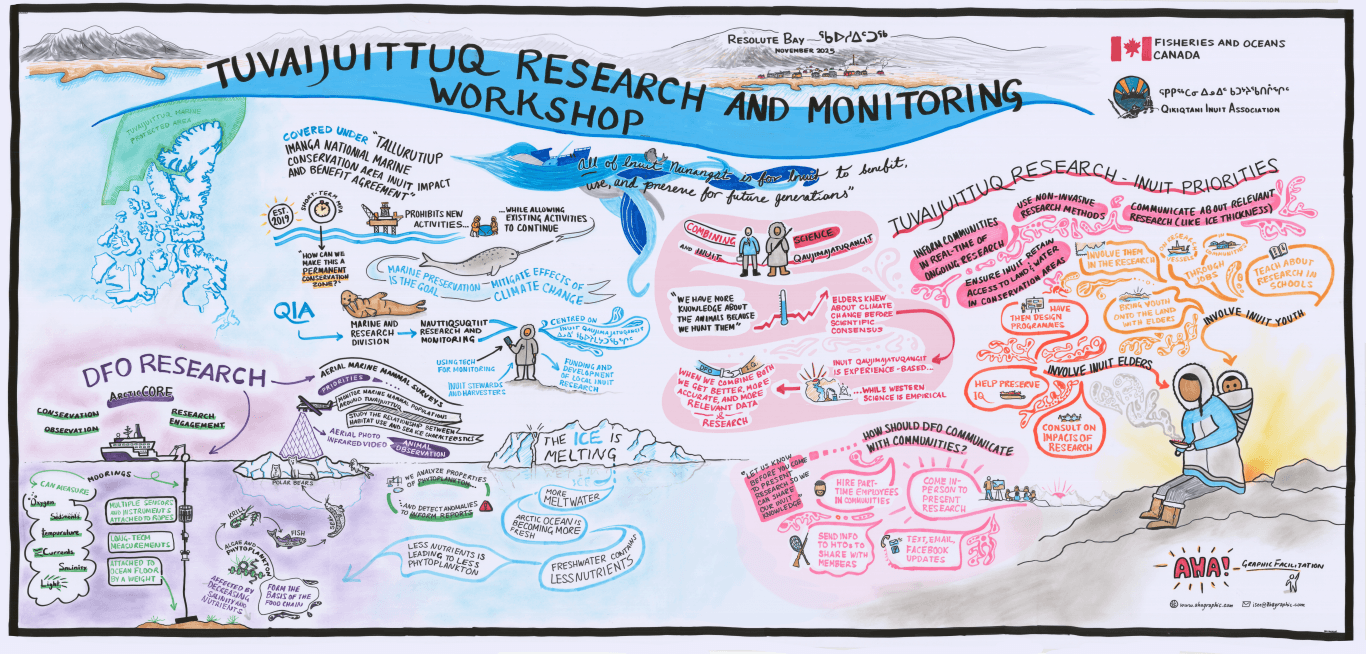 TUVAIJUITTUQ RESEARCH AND MONITORING
WORKSHOP
RESOLUTE BAY ᖃᐅᓱᐃᑦᑐᖅ
NOVEMBER 2025
FISHERIES AND OCEANS
CANADA
QIKIQTANI INUIT ASSOCIATION
TUVAIJUITTUQ MARINE
PROTECTED AREA
COVERED UNDER "TALLURUTIUP
IMANGA NATIONIAL MARINE
CONSERVATION AREA INUIT IMPACT
AND BENEFIT AGREEMENT"
"All of Inuit Nunangat is for Inuit to benefit,
use, and preserve for future generations"
EST.
2019
SHORT-TERM MPA
PROHIBITS NEW
ACTIVITIES...
...WHILE ALLOWING
EXISTING ACTIVITIES
TO CONTINUE
"HOW CAN WE
MAKE THIS A
PERMANENT
CONSERVATION
ZONE?"
MARINE PRESERVATION
IS THE GOAL
MITIGATE EFFECTS OF
CLIMATE CHANGE
QIA
MARINE AND
RESEARCH
DIVISION
NAUTTIQSUQTIIT
RESEARCH AND
MONITORING
CENTRED ON
INUIT QAUJIMAJATUQANGIT
USING TECH
FOR MONITORING
INUIT STEWARDS
AND HARVESTERS
FUNDING AND
DEVELOPMENT
OF LOCAL INUIT
RESEARCH
DFO RESEARCH
ARCTICCORE
CONSERVATION
OBSERVATION
RESEARCH
ENGAGEMENT
AERIAL MARINE MAMMAL SURVEYS
PRIORITIES
MONITOR MARINE MAMMAL POPULATIONS
AROUND TUVAIJUITTUQ
STUDY THE RELATIONSHIP BETWEEN
HABITAT USE AND SEA ICE CHARACTERISTICS
AERIAL PHOTO
INFRARED VIDEO
ANIMAL
OBSERVATION
MOORINGS
CAN MEASURE
Oxygen
Sediments
Temperature
Currents
Salinity
Light
MULTIPLE SENSORS
AND INSTRUMENTS
ATTACHED TO ROPES
LONG-TERM
MEASUREMENTS
ATTACHED TO
OCEAN FLOOR
BY A WEIGHT
POLAR BEARS
SEALS
KRILL
FISH
ALGAE AND
PHYTOPLANKTON
AFFECTED BY
DECREASING
SALINITY AND
NUTRIENTS
FORM THE
BASIS OF THE
FOOD CHAIN
WE ANALYZE PROPERTIES
OF PHYTOPLANKTON
AND DETECT ANOMALIES
TO INFORM REPORTS
THE ICE IS
MELTING
ICE
MORE
MELTWATER
ARCTIC OCEAN IS
BECOMING MORE
FRESH
FRESHWATER CONTAINS
LESS NUTRIENTS
LESS NUTRIENTS IS
LEADING TO LESS
PHYTOPLANKTON
COMBINING
SCIENCE
AND INUIT
QAUJIMAJATUQANGIT
"WE HAVE MORE
KNOWLEDGE ABOUT
THE ANIMALS BECAUSE
WE HUNT THEM"
ELDERS KNEW
ABOUT CLIMATE
CHANGE BEFORE
SCIENTIFIC
CONSENSUS
INUIT QAUJIMAJATUQANGIT
IS EXPERIENCE-BASED...
...WHILE WESTERN
SCIENCE IS EMPIRICAL
DFO
I.Q.
WHEN WE COMBINE BOTH
WE GET BETTER, MORE
ACCURATE, AND MORE
RELEVANT DATA
&
RESEARCH
HOW SHOULD DFO COMMUNICATE
WITH COMMUNITIES?
"LET US KNOW
BEFORE YOU COME
TO PRESENT
RESEARCH SO WE
CAN SHARE
OUR INUIT
KNOWLEDGE"
HIRE PART-
TIME EMPLOYEES
IN COMMUNITIES
COME IN-
PERSON TO
PRESENT
RESEARCH
SEND INFO
TO HTOs TO
SHARE WITH
MEMBERS
TEXT, EMAIL,
FACEBOOK
UPDATES
TUVAIJUITTUQ RESEARCH - INUIT PRIORITIES
INFORM COMMUNITIES
IN REAL-TIME OF
ONGOING RESEARCH
USE NON-INVASIVE
RESEARCH METHODS
COMMUNICATE ABOUT RELEVANT
RESEARCH (LIKE ICE THICKNESS)
ENSURE INUIT RETAIN
ACCESS TO LAND & WATER
IN CONSERVATION AREAS
INVOLVE THEM
IN THE RESEARCH
THROUGH
JOBS
TEACH ABOUT
RESEARCH IN
SCHOOLS
BRING YOUTH
ONTO THE LAND
WITH ELDERS
INVOLVE INUIT YOUTH
HAVE
THEM DESIGN
PROGRAMMES
INVOLVE INUIT ELDERS
HELP PRESERVE
IQ
CONSULT ON
IMPACTS OF
RESEARCH
AHA!
GRAPHIC FACILITATION
www.ahagraphic.com